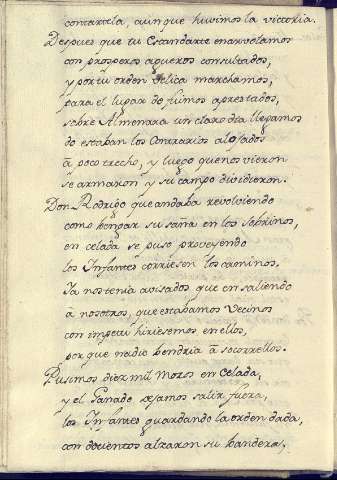 contarla, aunque huvimos la victoria.
Despues que tu Estandarte enarvolamos
con prosperos agueros consultados,
y por tu orden velica marchamos,
para el lugar do fuimos aprestados,
sobre Almenara un claro dia llegamos
do estaban los Contrarios alojados
ā poco trecho, y luego que nos vieron
se armaron y su campo dividieron.
Don Rodrigo que andaba revolviendo
como bengar su saña en los sobrinos,
en celada se puso proveyendo
los Infantes corriesen los caminos.
Ia nos tenia avisados que en saliendo
ā nosotros, que estabamos Vecinos
con impetu hiriesemos en ellos,
por que nadie bendria ā socorrellos.
Pusimos diez mil Moros en Celada,
y el Ganado dejamos salir fuera,
los Infantes guardando la orden dada,
con docientos alzaron su bandera,